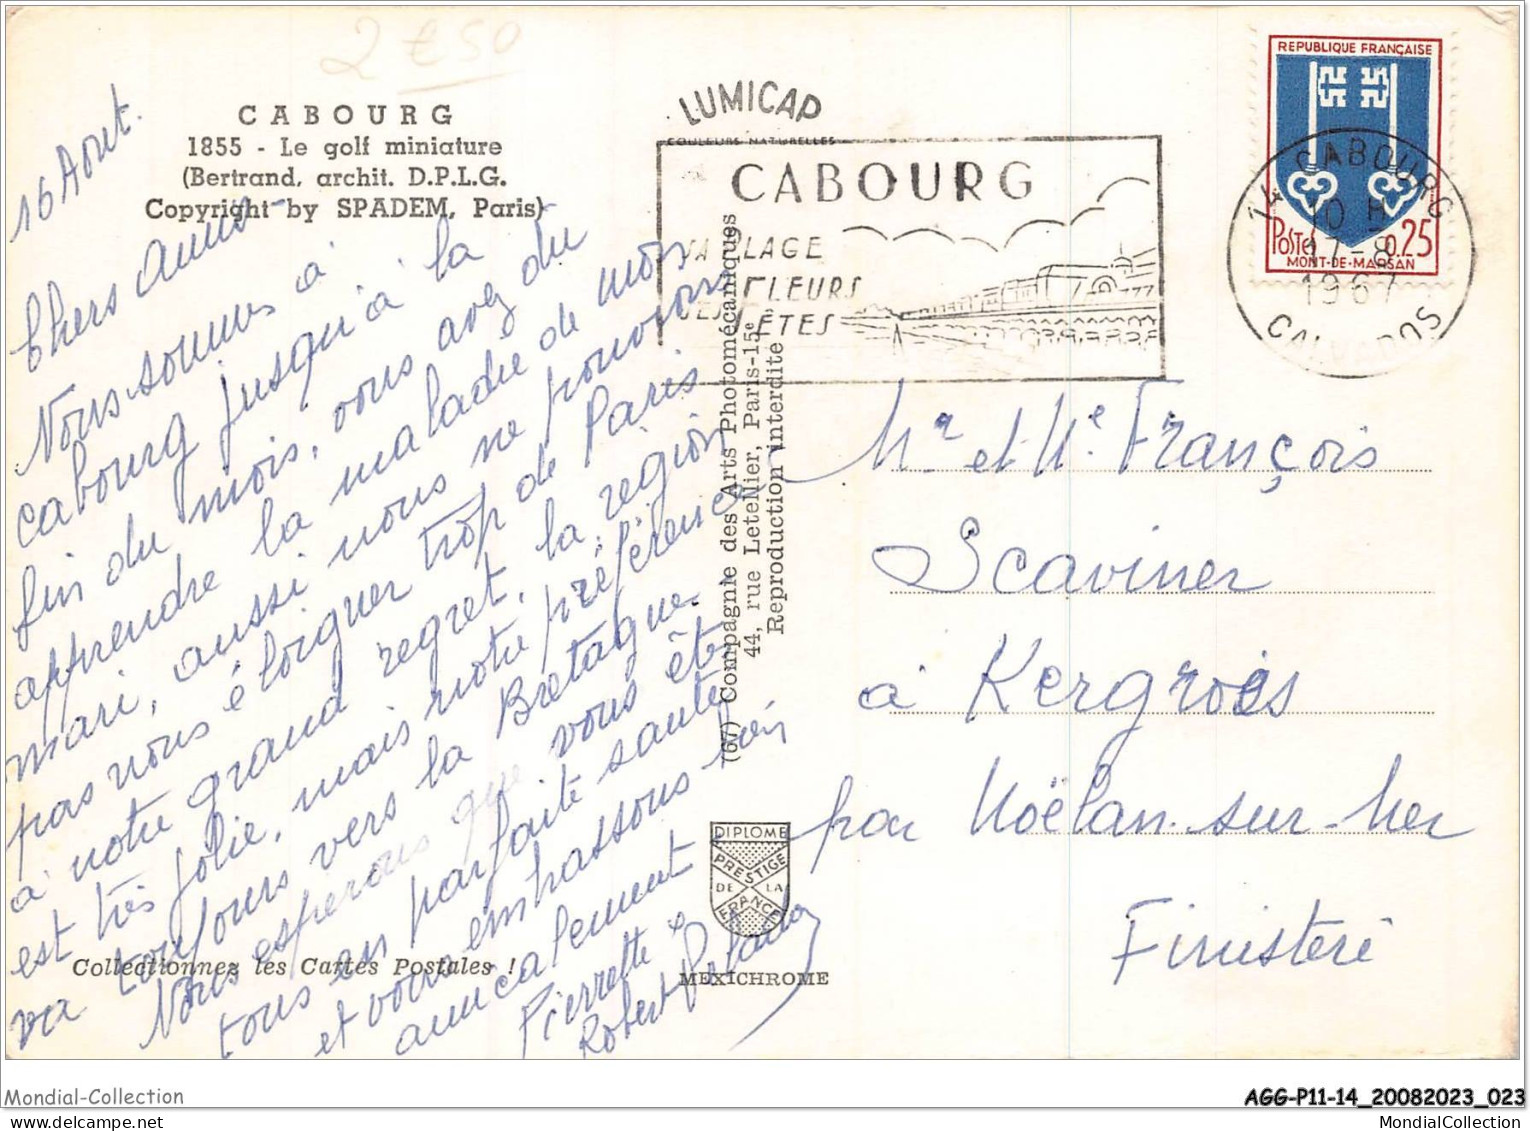 2 € 50
CABOURG
1855 - Le golf miniature
(Bertrand, archit. D.P.L.G.
Copyright by SPADEM, Paris)
16 Aout.
Chers Amis -
Nous sommes à
Cabourg jusqu'à la
fin du mois, vous avez du
apprendre la maladie de mon
mari, aussi nous ne pouvons
pas nous éloigner trop de Paris
à notre grand regret, la région
est très jolie, mais notre préférence
va toujours vers la Bretagne.
Nous espérons que vous êtes
tous en parfaite santé
et vous embrassons bien
amicalement -
Pierrette &
Robert
Collectionnez les Cartes Postales !
LUMICAP
COULEURS NATURELLES
CABOURG
SA PLAGE
SES FLEURS
SES FÊTES
(67) Compagnie des Arts Photomécaniques
44, rue Letellier, Paris-15e
Reproduction interdite
DIPLOME
PRESTIGE
DE LA
FRANCE
MEXICHROME
REPUBLIQUE FRANÇAISE
POSTES 0,25
MONT-DE-MARSAN
14 CABOURG
10 H
17-8
1967
CALVADOS
Mr et Me François
Scaviner
à Kergroës
par Nöëlan-sur-Mer
Finistère
Mondial-Collection
AGG-P11-14_20082023_023
mondial-collection.com
MondialCollection.com